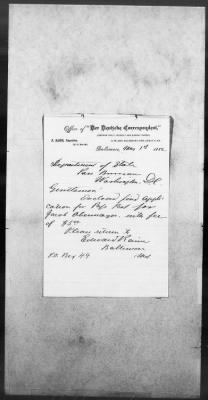 Office of "Der Deutsche Correspondent,"
Baltimore, May 1st 1882
Department of State
Pass Bureau
Washington, D.C.
Gentlemen:
Inclosed find Appli-
cation for Pass Port for
Jacob with fee
of $5.00
Please return to
Edward Raine
Baltimore
P.O. Box 49 Md